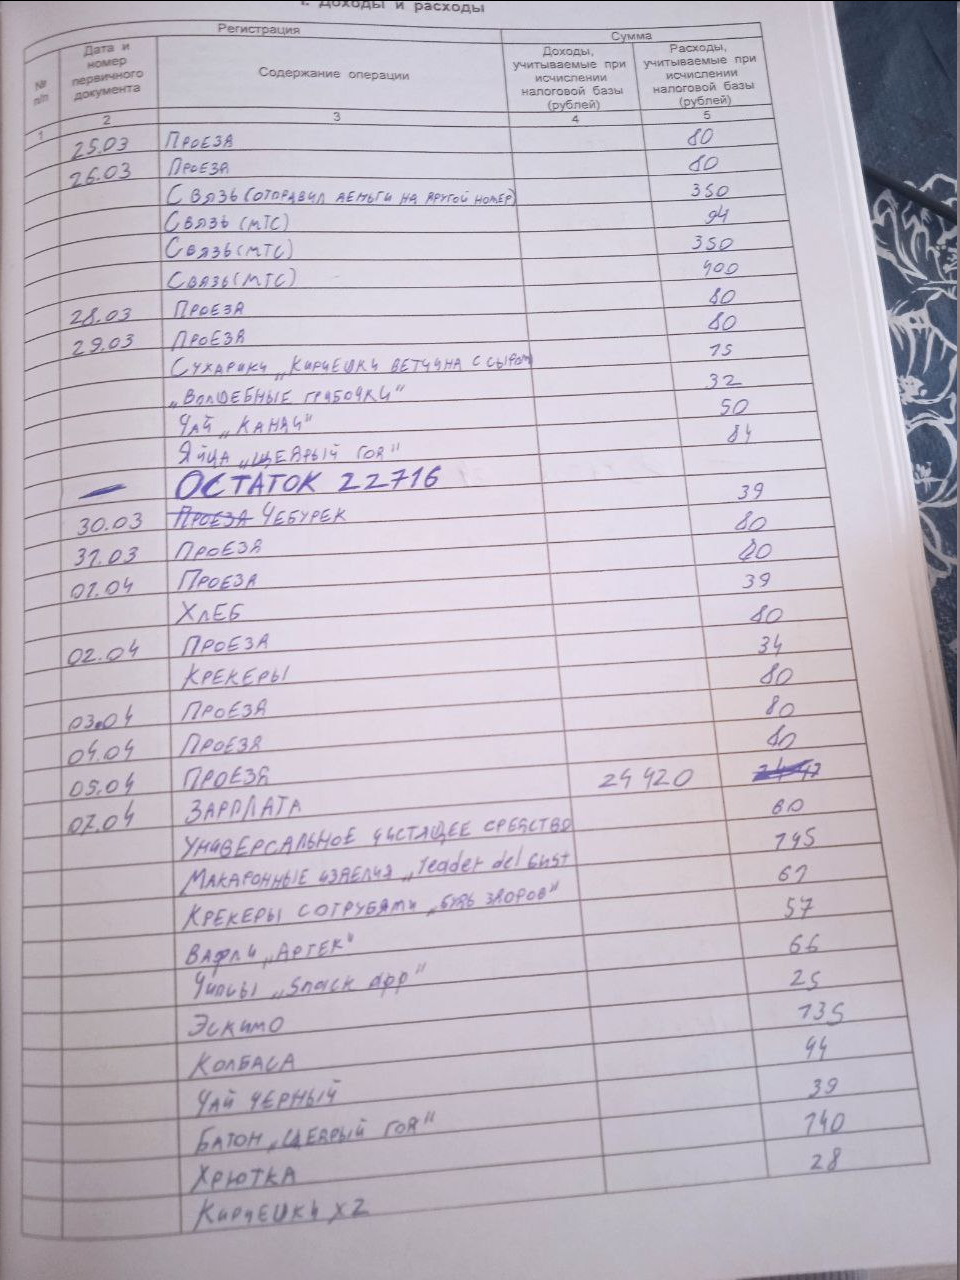 I. Доходы и расходы
Регистрация Сумма
№ п/п Дата и номер первичного документа Содержание операции Доходы, учитываемые при исчислении налоговой базы (рублей) Расходы, учитываемые при исчислении налоговой базы (рублей)
1 2 3 4 5
25.03 ПРОЕЗД 80
26.03 ПРОЕЗД 80
СВЯЗЬ (ОТПРАВИЛ ДЕНЬГИ НА ДРУГОЙ НОМЕР) 350
СВЯЗЬ (МТС) 94
СВЯЗЬ (МТС) 350
СВЯЗЬ (МТС) 400
28.03 ПРОЕЗД 80
29.03 ПРОЕЗД 80
СУХАРИКИ „КИРИЕШКИ ВЕТЧИНА С СЫРОМ 15
„ВОЛШЕБНЫЕ ГРИБОЧКИ" 32
ЧАЙ „КАНДИ" 50
ЯЙЦА „ЩЕДРЫЙ ГОД" 84
— ОСТАТОК 22716
30.03 ПРОЕЗД ЧЕБУРЕК 39
31.03 ПРОЕЗД 80
01.04 ПРОЕЗД 80
ХЛЕБ 39
02.04 ПРОЕЗД 80
КРЕКЕРЫ 34
03.04 ПРОЕЗД 80
04.04 ПРОЕЗД 80
05.04 ПРОЕЗД 80
07.04 ЗАРПЛАТА 24 420
УНИВЕРСАЛЬНОЕ ЧИСТЯЩЕЕ СРЕДСТВО 60
МАКАРОННЫЕ ИЗДЕЛИЯ „Leader del Gust 145
КРЕКЕРЫ С ОТРУБЯМИ „БУДЬ ЗДОРОВ" 61
ВАФЛИ „АРТЕК" 57
ЧИПСЫ „Snack app" 66
ЭСКИМО 25
КОЛБАСА 135
ЧАЙ ЧЕРНЫЙ 44
БАТОН „ЩЕДРЫЙ ГОД" 39
ХРЮТКА 140
КИРИЕШКИ X2 28